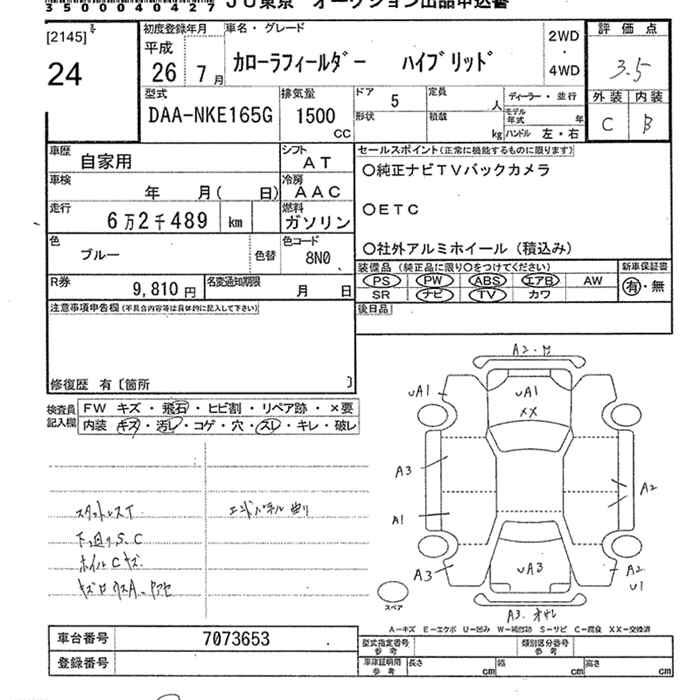 35000040427 JU東京 オークション出品申込書
[2145]
24
初度登録年月
平成
26年 7月
車名・グレード
カローラフィールダー ハイブリッド
2WD
・
4WD
評価点
3.5
外装 内装
C B
型式
DAA-NKE165G
排気量
1500
cc
ドア
5
定員
人
形状
積載
kg
ディーラー・並行
モデル年式 年
ハンドル 左・右
車歴
自家用
シフト
AT
車検
年 月( 日)
冷房
AAC
走行
6万2千489 km
燃料
ガソリン
色
ブルー
色替
色コード
8N0
R券
9,810円
名変通知期限
月 日
セールスポイント(正常に機能するものに限ります)
○純正ナビTVバックカメラ
○ETC
○社外アルミホイール(積込み)
装備品(純正品に限り○をつけてください)
PS PW ABS エアB AW
SR ナビ TV カワ
新車保証書
有・無
後日品
注意事項申告欄(不具合内容等は具体的に記入して下さい)
修復歴 有〔箇所 〕
検査員記入欄
FW キズ・飛石・ヒビ割・リペア跡・×要
内装 キズ・汚レ・コゲ・穴・スレ・キレ・破レ
下回りS、C
ホイルCキズ
エンドパネル曲り
A2
UA1
UA1
XX
A3
A1
A2
A3
UA3
A2
U1
A3
スペア
A-キズ E-エクボ U-凹み W-補修跡 S-サビ C-腐食 XX-交換済
車台番号
7073653
登録番号
型式指定番号
参考
類別区分番号
参考
車庫証明用
参考
長さ cm
幅 cm
高さ cm